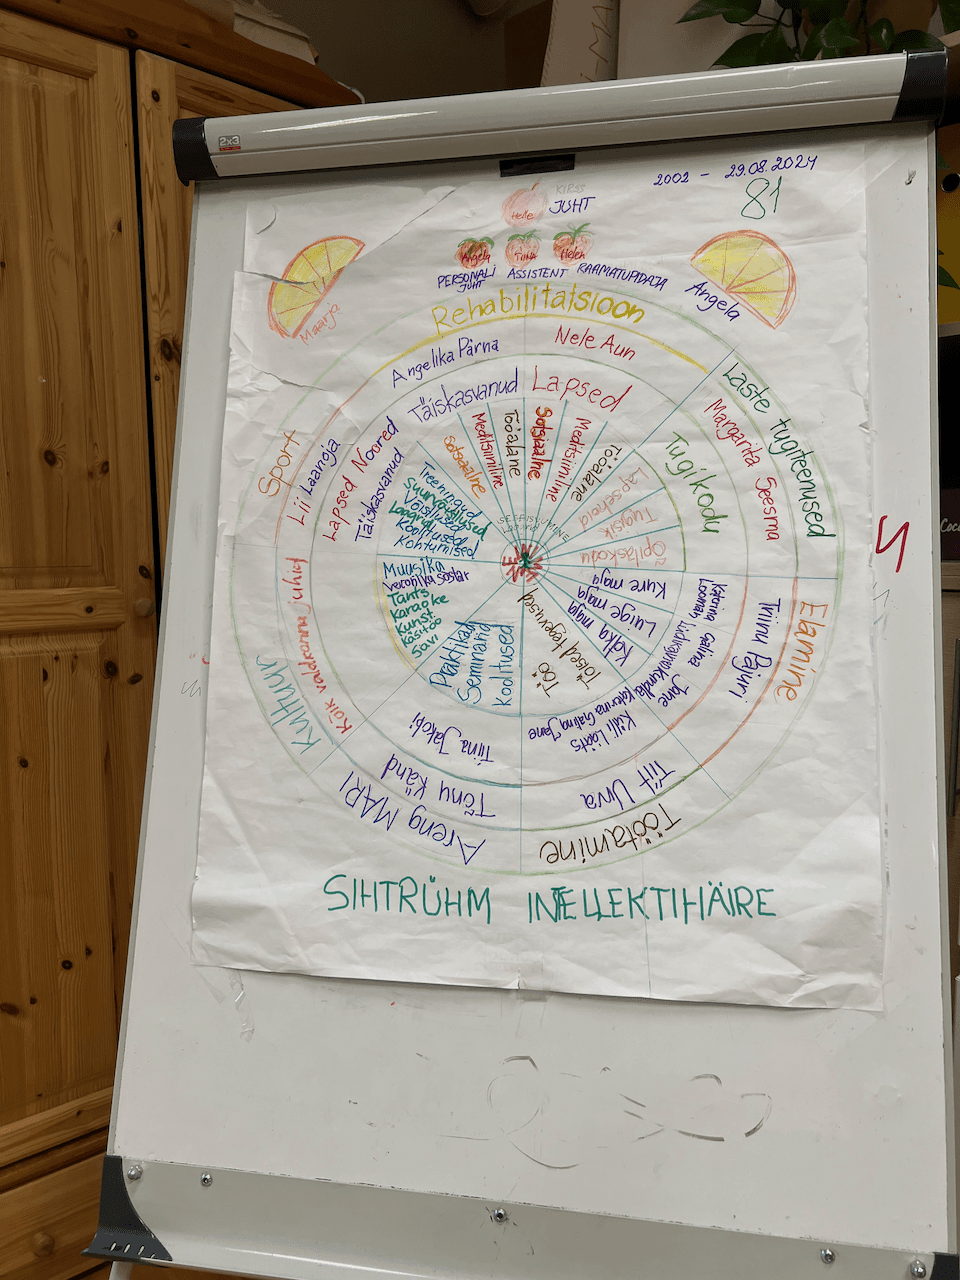 2x3
2002 – 29.08.2024
81
KIRSS
Helle
JUHT
Angela
Tiina
Helen
PERSONALI JUHT
ASSISTENT
RAAMATUPIDAJA
Maarja
Angela
Rehabilitatsioon
Angelika Pärna
Nele Aun
Täiskasvanud
Lapsed
Sotsiaalne
Meditsiiniline
Tööalane
Sotsiaalne
Meditsiiniline
Tööalane
Laste tugiteenused
Margarita Seesma
Tugikodu
Lapsehoid
Tugiisik
Õpilaskodu
Elamine
Triinu Pajuri
Katerina
Galina
Jane
Kure maja
Luige maja
Kaka maja
Töötamine
Tiit Urva
Külli Lääts
Katerina Galina Jane
Töö
Töised tegevused
Areng MARI
Tõnu Känd
Tiina Jakobi
Praktikad
Seminarid
Koolitused
Kultuur
Kõik valdkonna juhid
Muusika
Veronika Sostar
Tants
Karaoke
Kunst
Käsitöö
Savi
Sport
Lii Laanoja
Lapsed Noored
Täiskasvanud
Treeningud
Suurvõistlused
Võistlused
Laagrid
Koolitused
Kohtumised
SIHTRÜHM INTELLEKTIHÄIRE